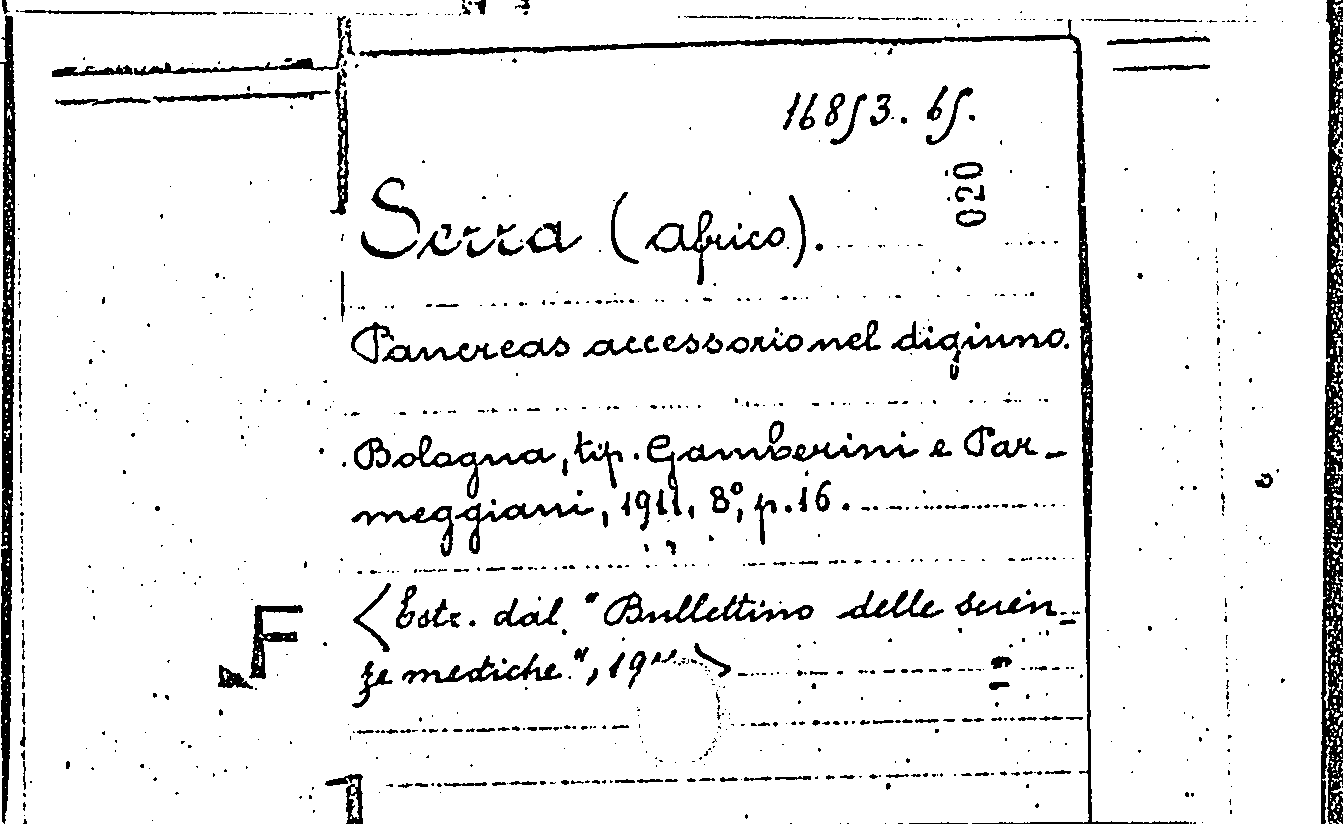 16853. 65.
020
Serra (Africo).
Pancreas accessorio nel digiuno.
Bologna, tip. Gamberini e Par-
meggiani, 1911. 8°, p. 16.
<Estr. dal "Bullettino delle scien-
ze mediche", 19
F